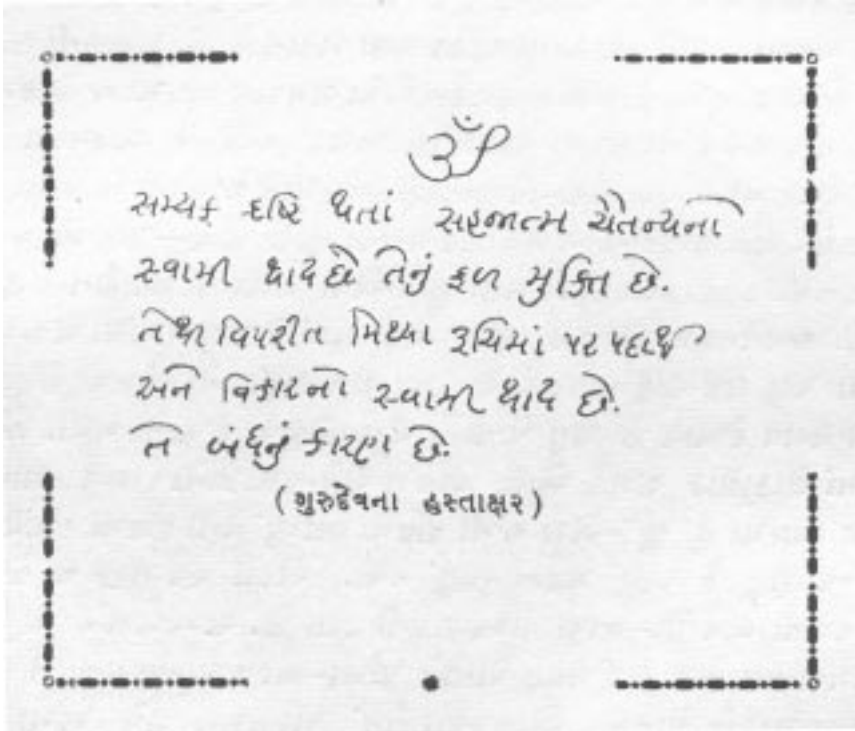 ૐ
સમ્યક દ્રષ્ટિ થતાં સહજાત્મ ચૈતન્યનો
સ્વામી થાય છે તેનું ફળ મુક્તિ છે.
તેથી વિપરીત મિથ્યા રૂચિમાં પર પદાર્થ
અને વિકારનો સ્વામી થાય છે.
તે બંધનું કારણ છે.
(ગુરુદેવના હસ્તાક્ષર)